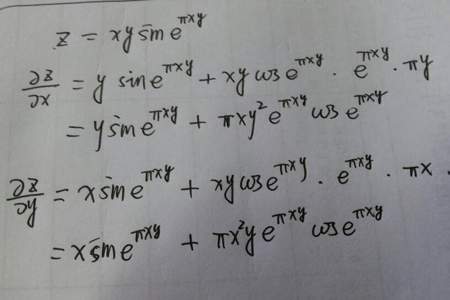 z = xy sin e^{πxy}
∂z/∂x = y sin e^{πxy} + xy cos e^{πxy} · e^{πxy} · πy
= y sin e^{πxy} + πxy² e^{πxy} cos e^{πxy}
∂z/∂y = x sin e^{πxy} + xy cos e^{πxy} · e^{πxy} · πx.
= x sin e^{πxy} + πx²y e^{πxy} cos e^{πxy}